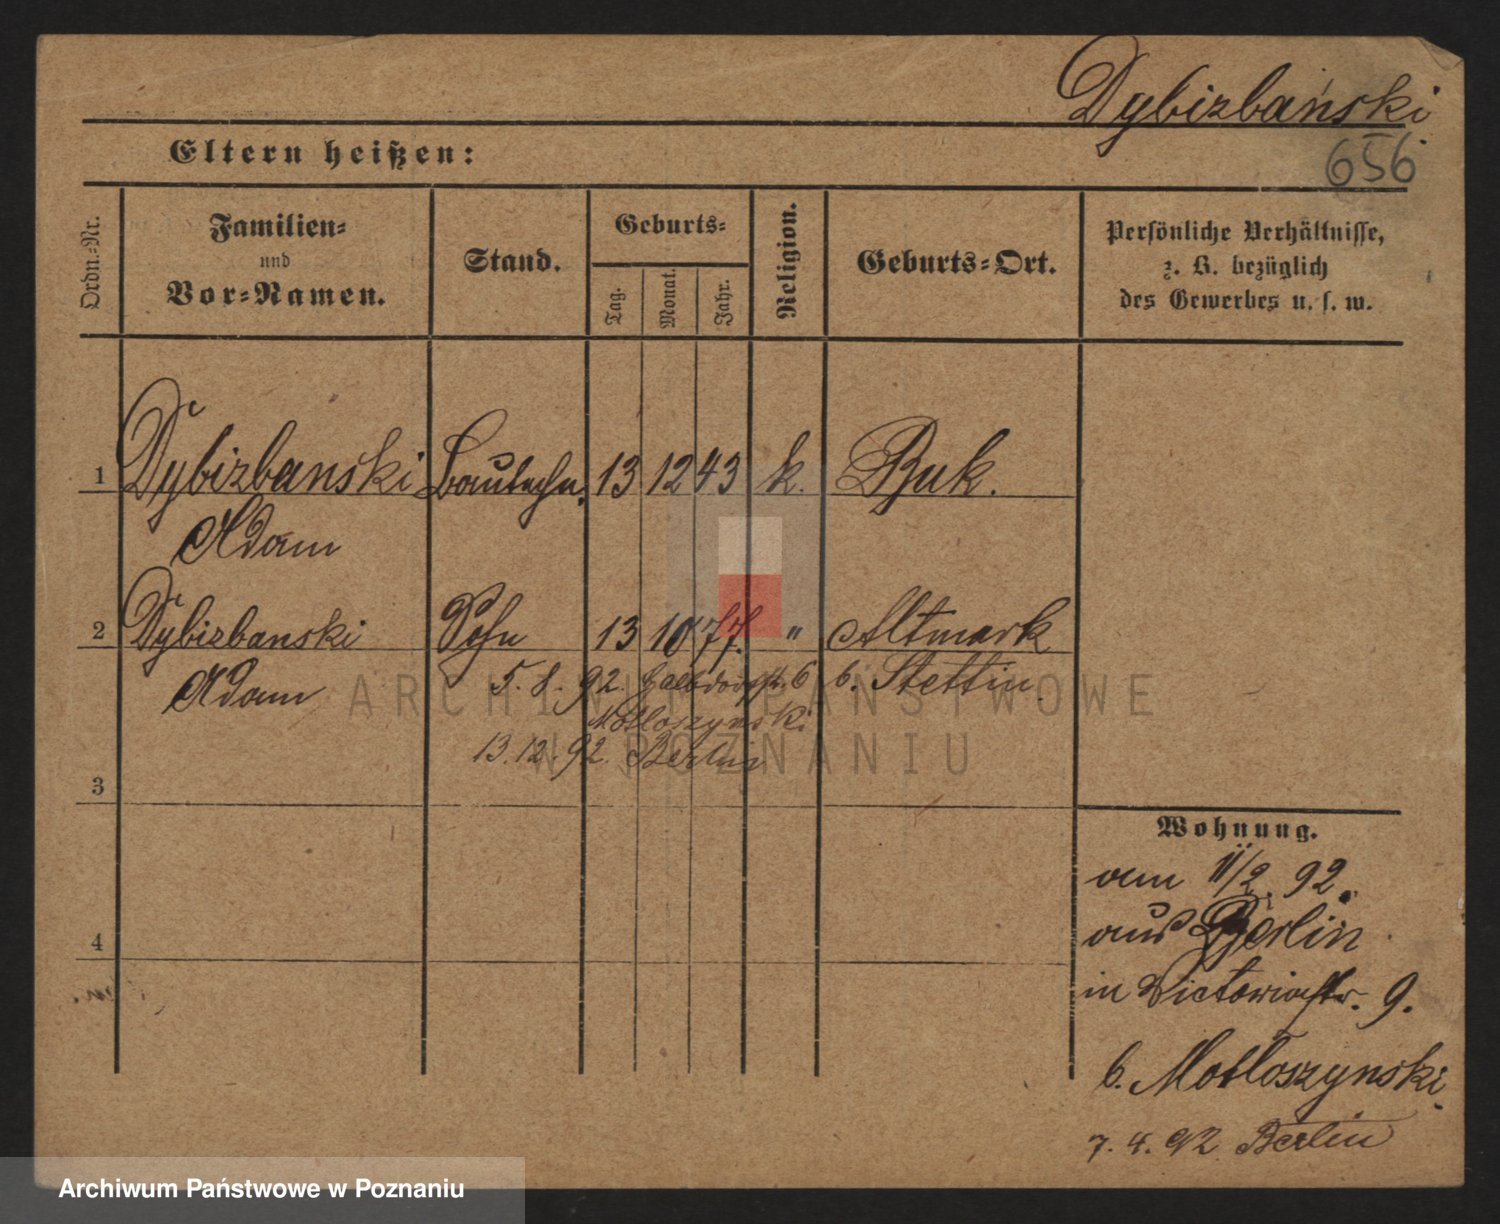 Dybizbański
656
Eltern heißen:
Ordn.-Nr.
Familien-
und
Vor-Namen.
Stand.
Geburts-
Tag.
Monat.
Jahr.
Religion.
Geburts-Ort.
Persönliche Verhältnisse,
z. B. bezüglich
des Gewerbes u. s. w.
1 Dybizbanski Bautechn. 13 12 43 k. Buk.
Adam
2 Dybizbanski Sohn 13 10 77. " Altmark
Adam
5. 8. 92. Halbdorfstr. 6 b. Stettin
Motloszynski
13. 12. 92. Berlin
3
4
Wohnung.
am 11/2. 92.
aus Berlin
in Victoriastr. 9.
b. Motloszynski
7. 4. 92 Berlin
ARCHIWUM PAŃSTWOWE
W POZNANIU
Archiwum Państwowe w Poznaniu